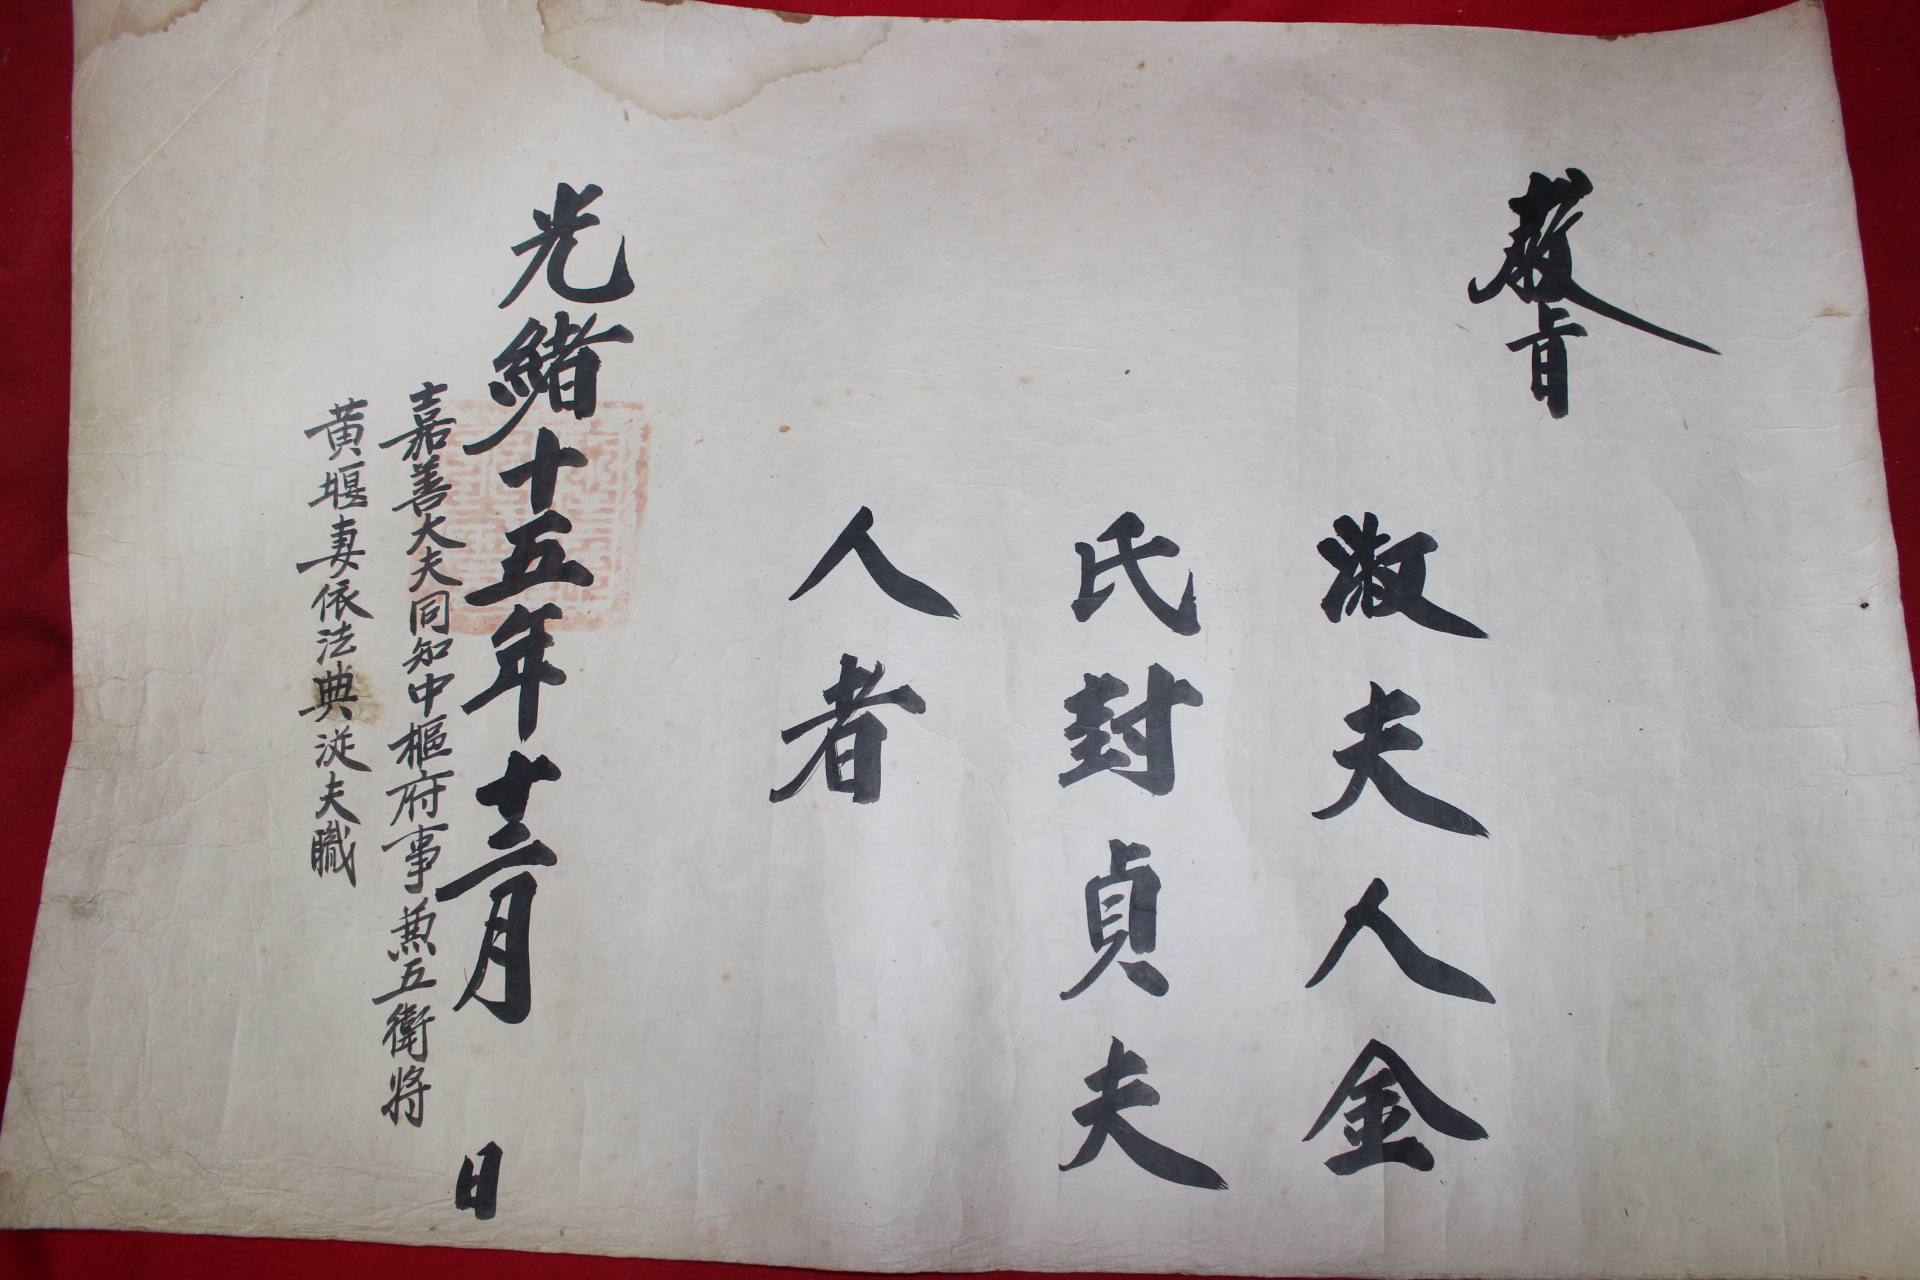 敎旨
淑夫人金
氏封貞夫
人者
光緖十五年十二月 日
嘉善大夫同知中樞府事兼五衛將
黃堰妻依法典從夫職